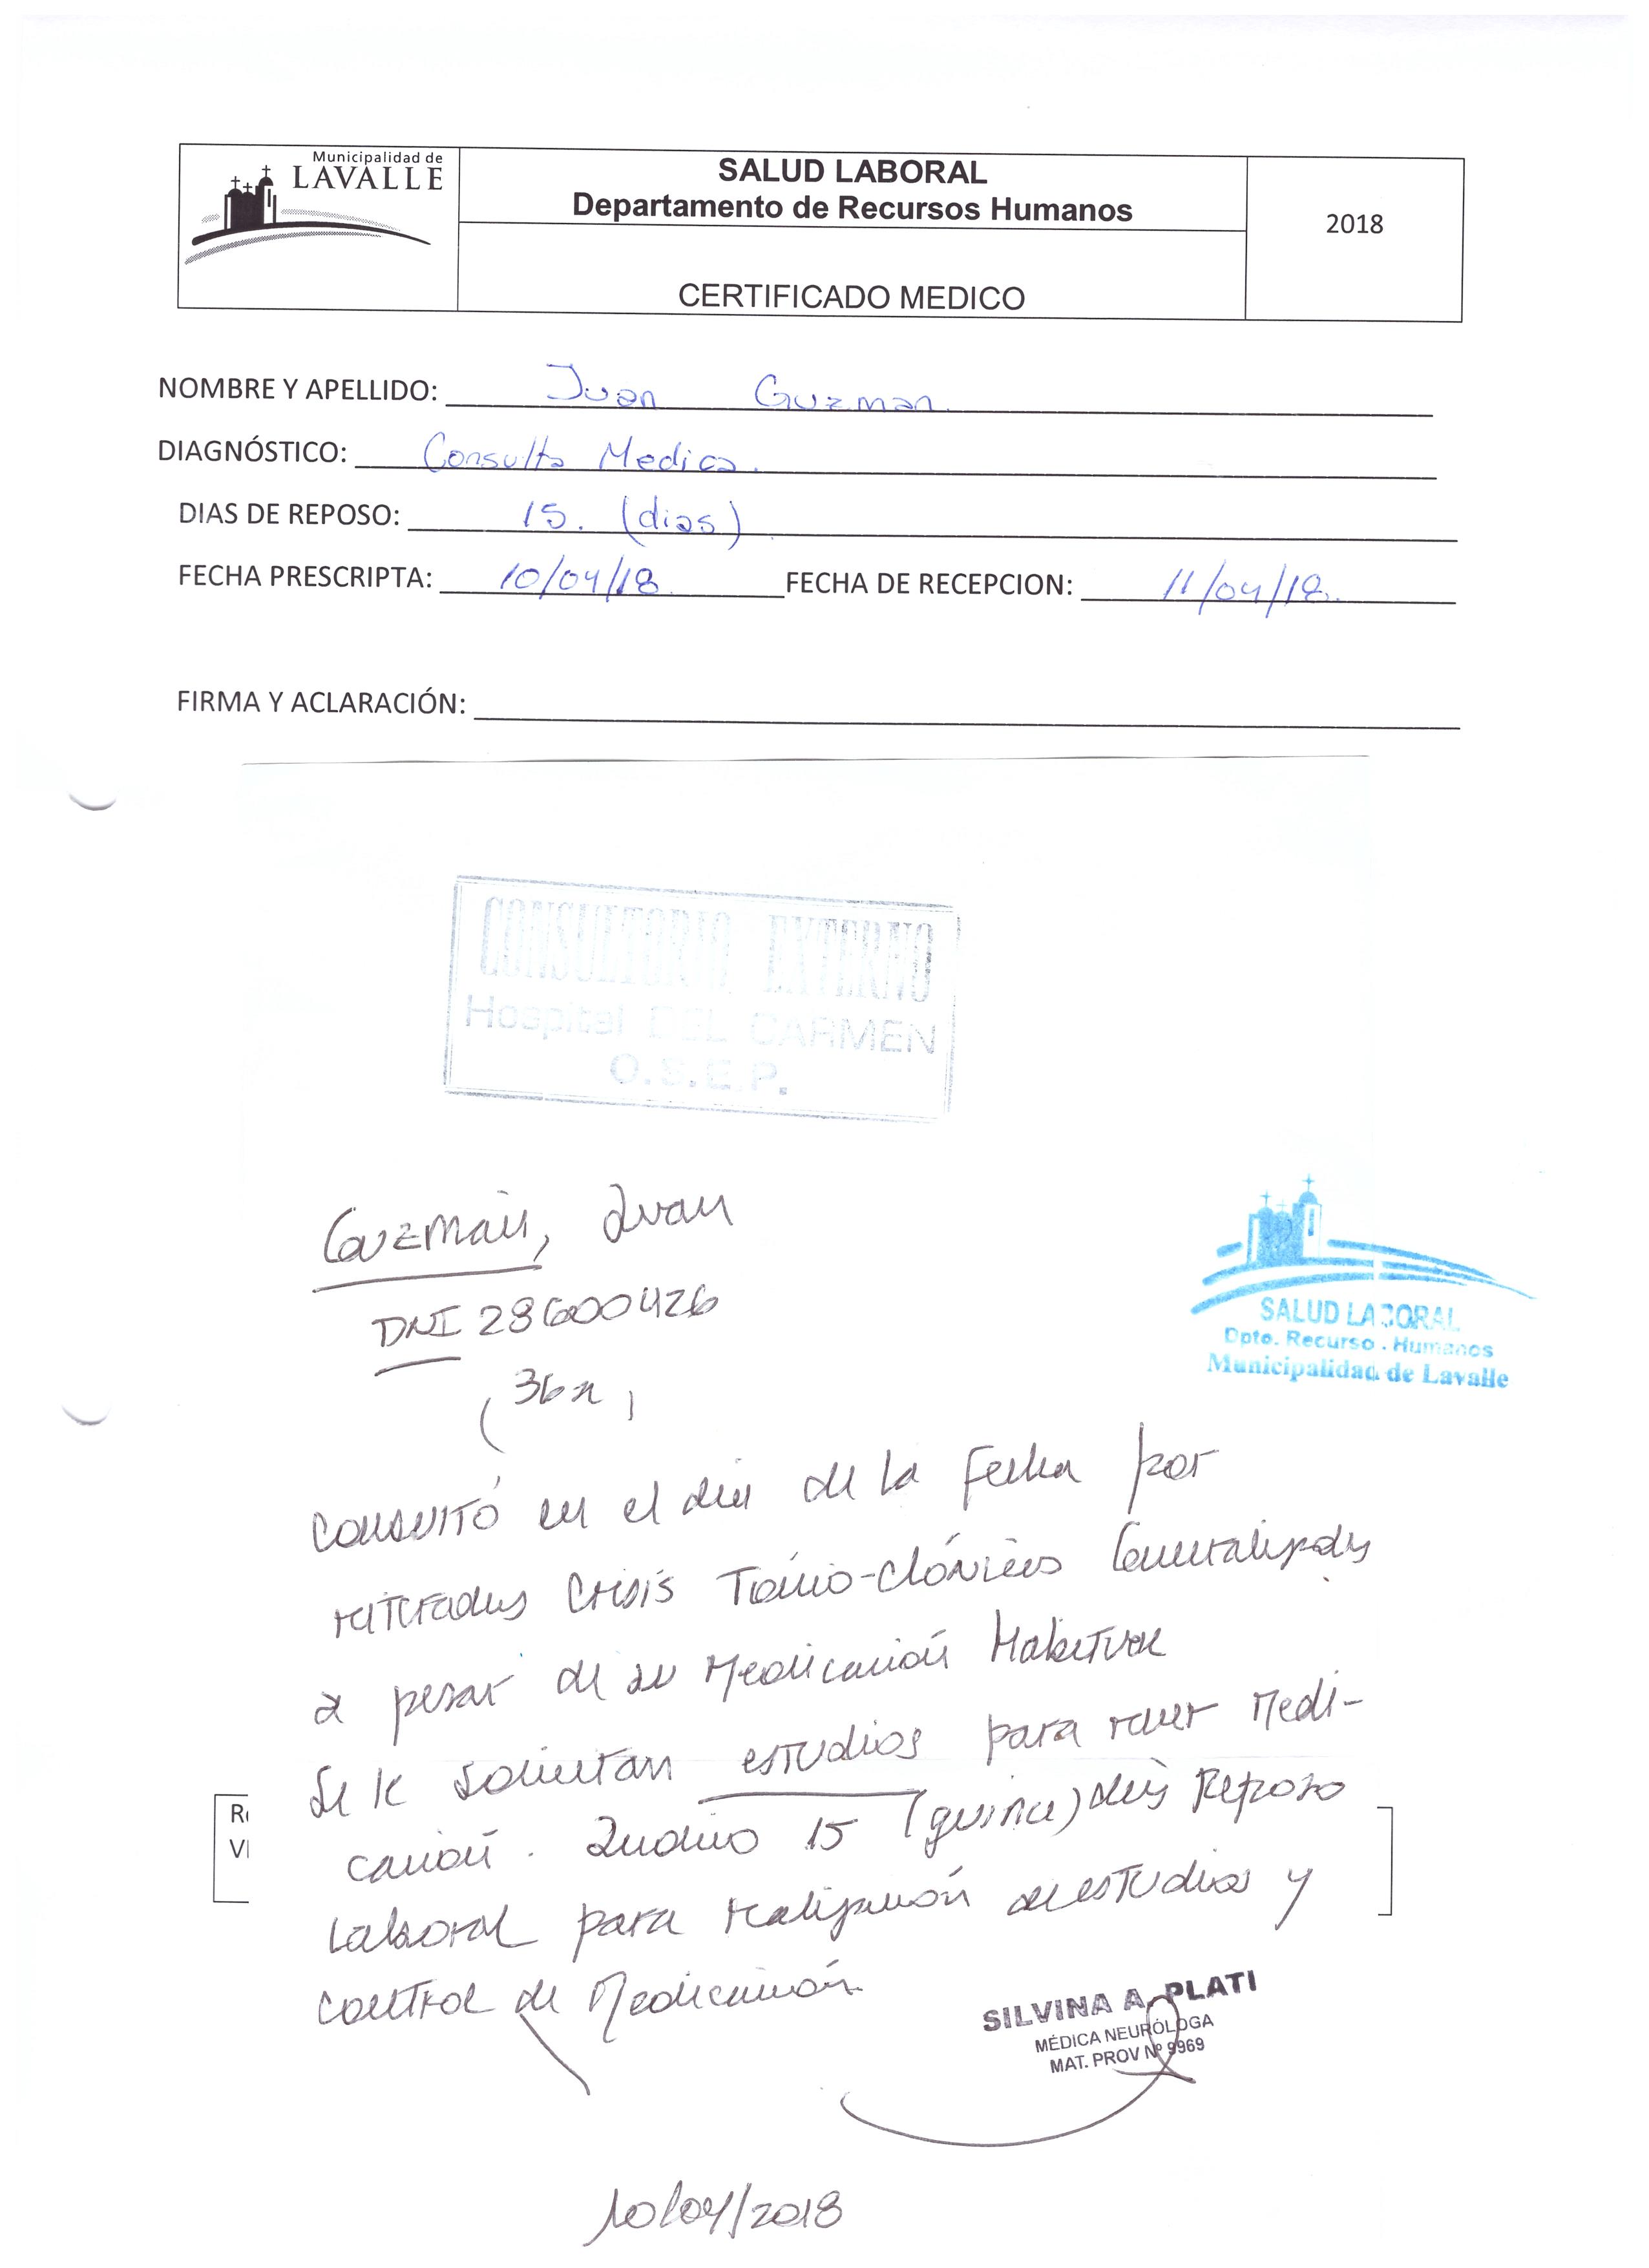 Municipalidad de
LAVALLE
SALUD LABORAL
Departamento de Recursos Humanos
CERTIFICADO MEDICO
2018
NOMBRE Y APELLIDO: Juan Guzman
DIAGNÓSTICO: Consulta Medica.
DIAS DE REPOSO: 15. (dias)
FECHA PRESCRIPTA: 10/04/18 FECHA DE RECEPCION: 11/04/18.
FIRMA Y ACLARACIÓN:
CONSULTORIO EXTERNO
Hospital DEL CARMEN
O.S.E.P.
Guzmán, Juan
DNI 28600426
(36a)
SALUD LABORAL
Dpto. Recurso . Humanos
Municipalidad de Lavalle
Consultó en el día de la fecha por
reiteradas Crisis Tónico-Clónicas Generalizadas
a pesar de su Medicación Habitual
Se le solicitan estudios para rever Medi-
cación. Indico 15 (quince) días Reposo
Laboral para realización de estudios y
control de Medicación
SILVINA A. PLATI
MÉDICA NEURÓLOGA
MAT. PROV Nº 9969
10/04/2018